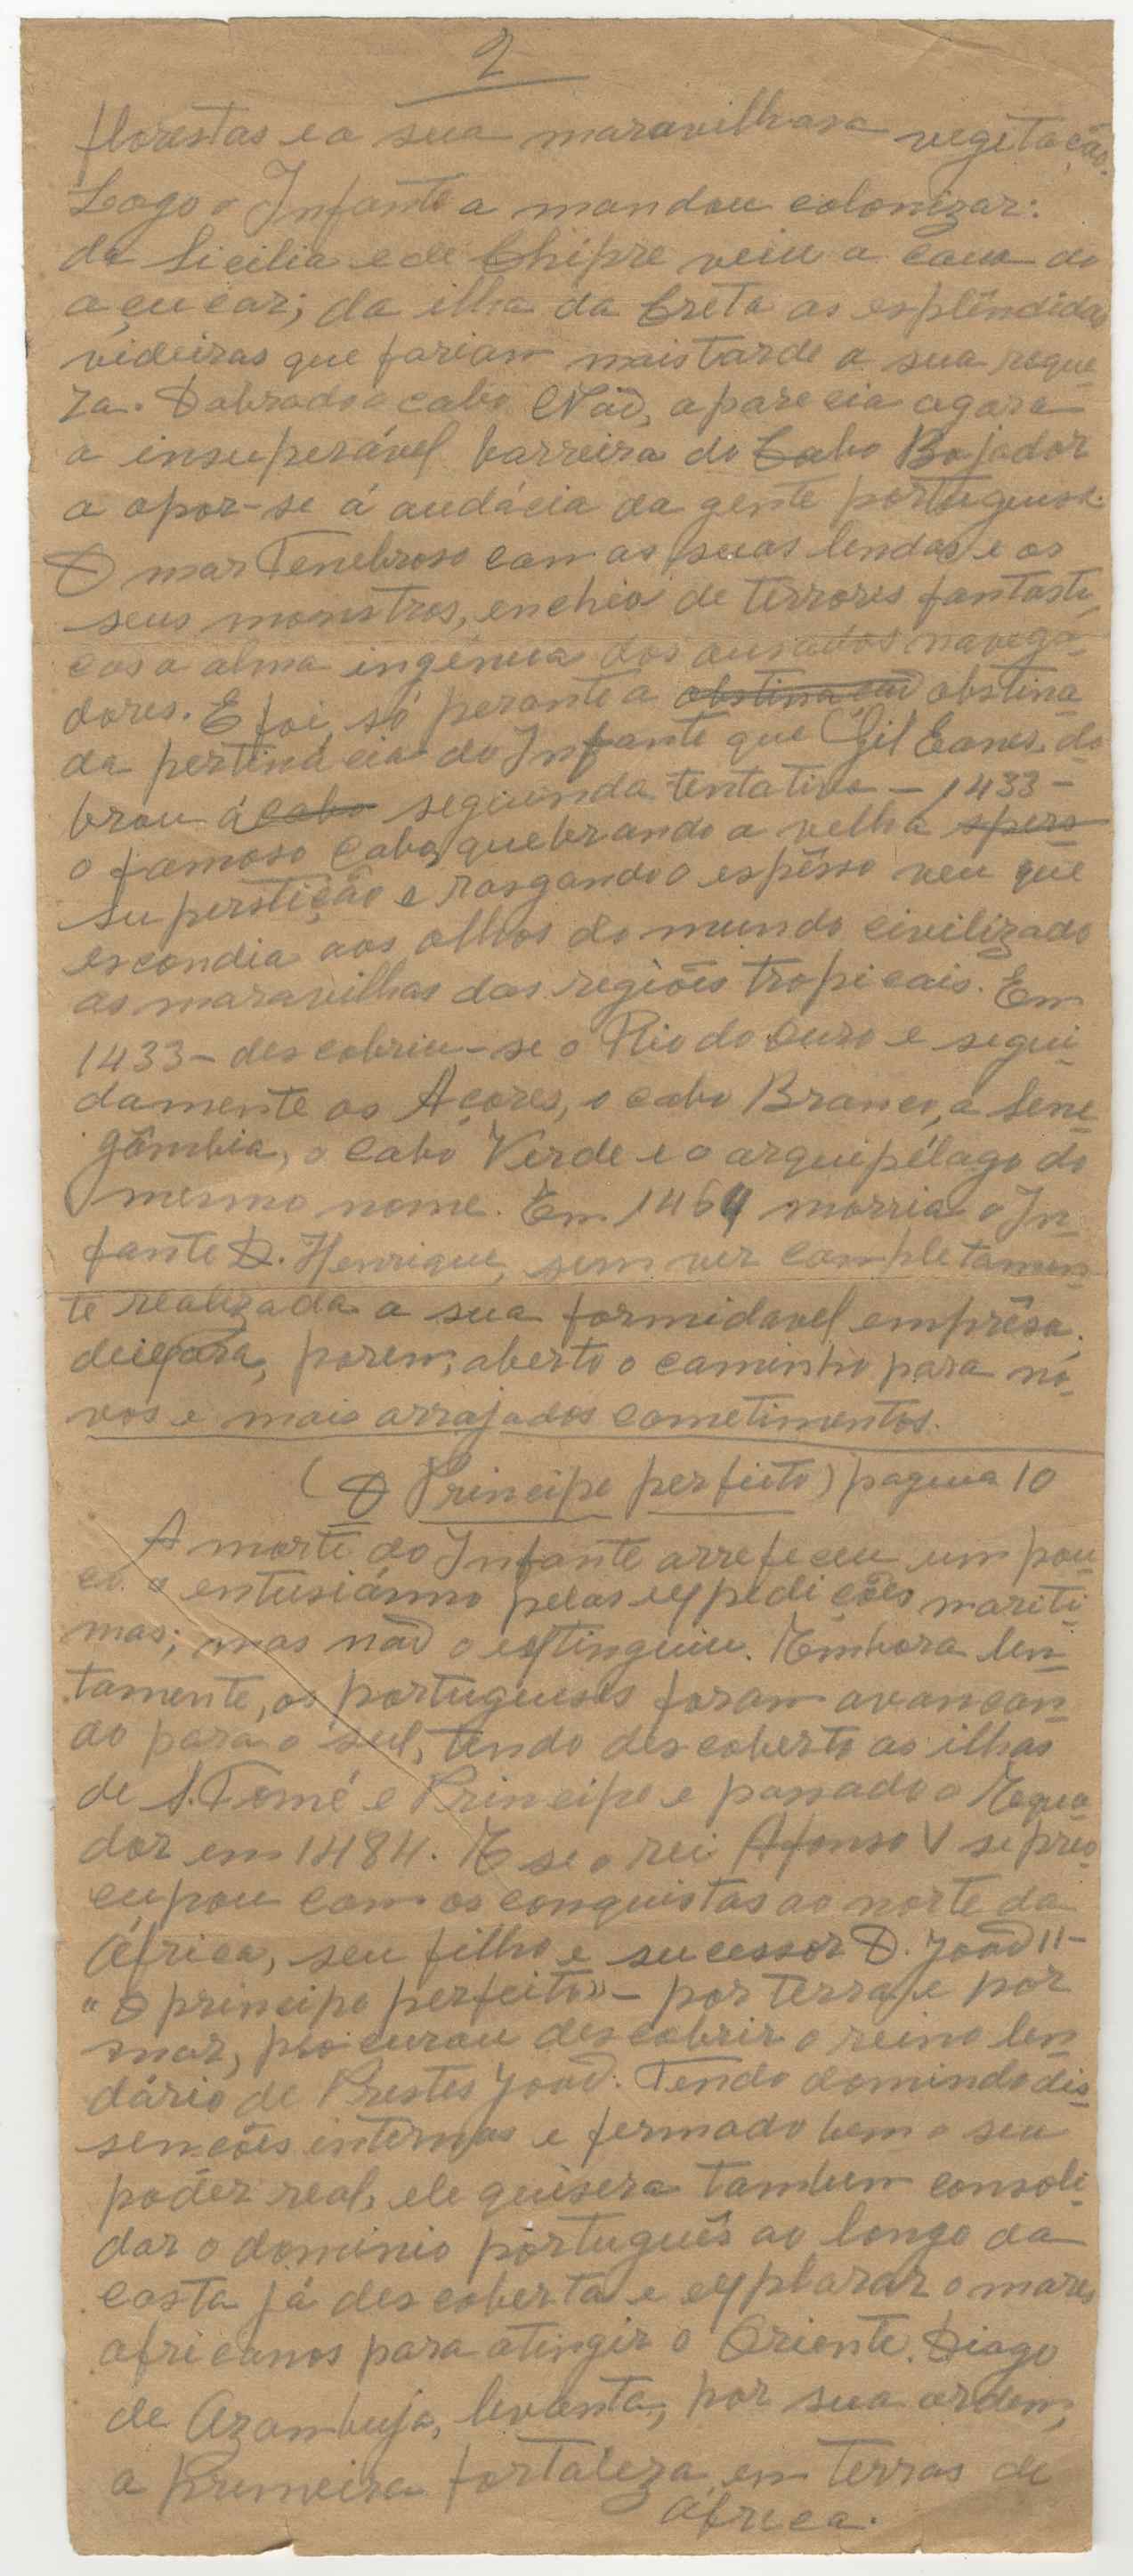 2
florestas e a sua maravilhosa vegetação.
Logo o Infante a mandou colonizar:
da Sicilia e de Chipre veiu a cana do
açucar; da ilha da Creta as esplêndidas
videiras que fariam mais tarde a sua rique-
za. Dobrado o cabo Não, aparecia agora
a insuperável barreira do Cabo Bojador
a opor-se á audácia da gente portuguesa.
O mar Tenebroso com as suas lendas e os
seus monstros, enchia de terrores fantásti-
cos a alma ingénua dos ousados navega-
dores. E foi só perante a obstinação obstina-
da pertinácia do Infante que Gil Eanes do-
brou á cabo segunda tentativa - 1433 -
o famoso Cabo, quebrando a velha spers
superstição e rasgando o espêsso veu que
escondia aos olhos do mundo civilizado
as maravilhas das regiões tropicais. Em
1433 - descobriu-se o Rio do Ouro e segui-
damente os Açores, o cabo Branco, a Sene-
gâmbia, o Cabo Verde e o arquipélago do
mesmo nome. Em 1464 morria o In-
fante D. Henrique, sem ver completamen-
te realizada a sua formidavel emprêsa;
deixara, porem, aberto o caminho para nó-
vos e mais arrojados cometimentos.
(O Principe perfeito) pagina 10
A morte do Infante arrefeceu um pou-
co o entusiásmo pelas expedições mariti-
mas; mas não o extinguiu. Embora len-
tamente, os portugueses foram avançan-
do para o sul, tendo descoberto as ilhas
de S. Tomé e Principe e passado o Equa-
dor em 1484. E se o rei Afonso V se preo-
cupou com as conquistas ao norte da
África, seu filho e sucessor D. João II -
"O principe perfeito" - por terra e por
mar, procurou descobrir o reino len-
dário de Prestes João. Tendo domindo dis-
senções internas e fermado bem o seu
podêr real, ele quisera tambem consoli-
dar o dominio português ao longo da
costa já descoberta e explorar o mares
africanos para atingir o Oriente. Diogo
de Azambuja, levanta, por sua ordem,
a primeira fortaleza em terras de
África.